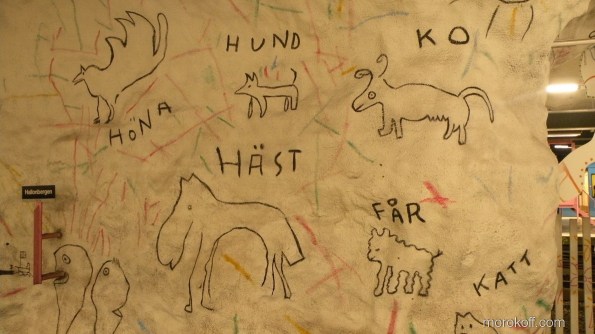 HUND
KO
HÖNA
HÄST
Hallonbergen
FÅR
KATT
morokoff.com